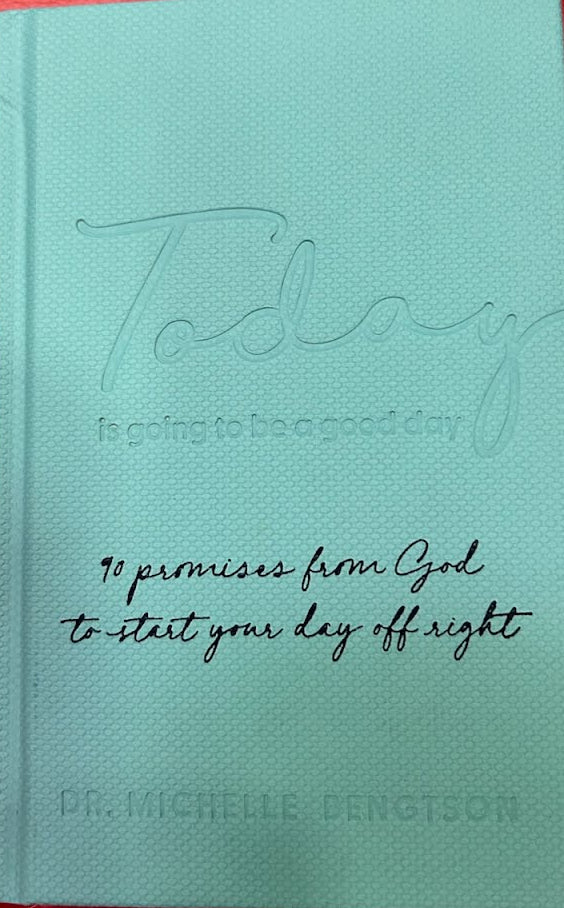 Today
is going to be a good day
90 promises from God
to start your day off right
DR. MICHELLE BENGTSON